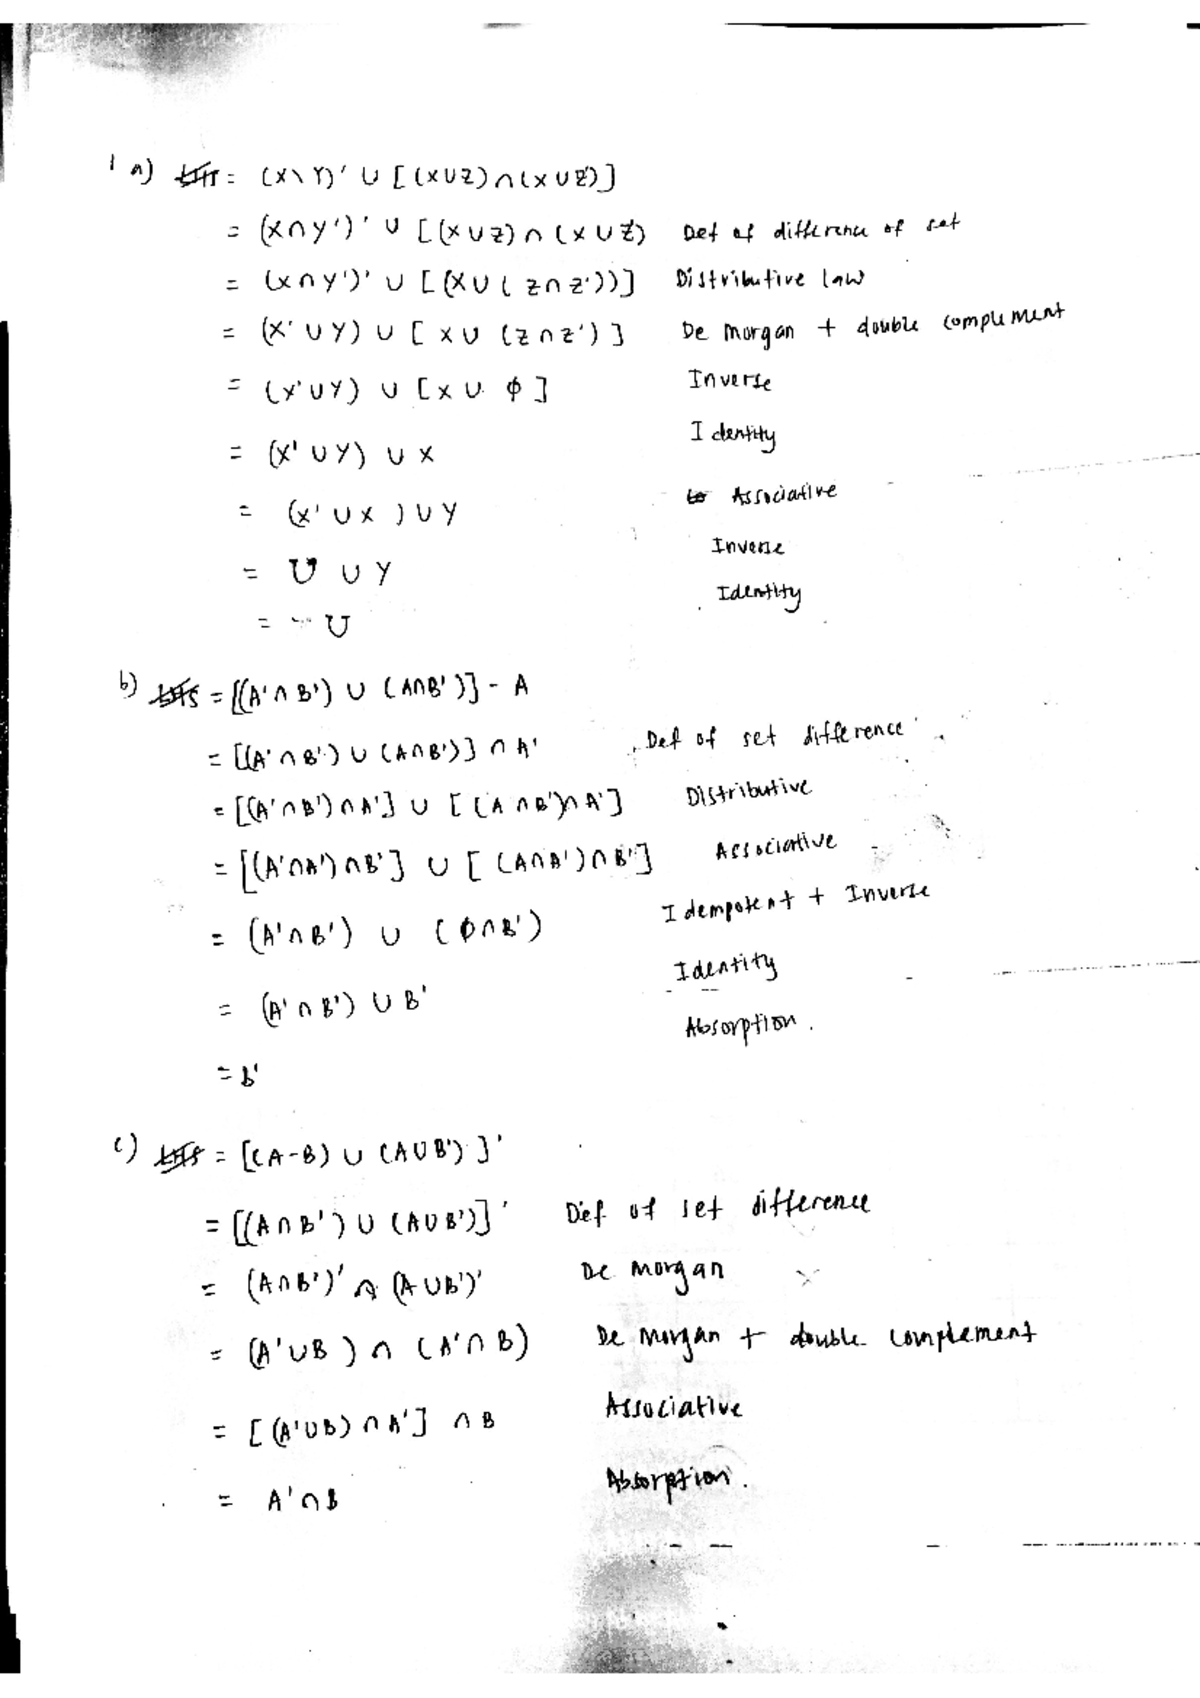 1 a) LHS = (X \ Y)' ∪ [(X∪Z)∩(X∪Z')]
= (X∩Y')' ∪ [(X∪Z)∩(X∪Z') Def of difference of set
= (X∩Y')' ∪ [(X∪(Z∩Z'))] Distributive law
= (X'∪Y) ∪ [X∪(Z∩Z')] De morgan + double complement
= (X'∪Y) ∪ [X∪ϕ] Inverse
= (X'∪Y) ∪ X Identity
= (X'∪X)∪Y Associative
= U ∪ Y Inverse
= U Identity
b) LHS = [(A'∩B') ∪ (A∩B')] - A
= [(A'∩B') ∪ (A∩B')] ∩ A' Def of set difference
= [(A'∩B')∩A'] ∪ [(A∩B')∩A'] Distributive
= [(A'∩A')∩B'] ∪ [(A∩A')∩B'] Associative
= (A'∩B') ∪ (ϕ∩B') Idempotent + Inverse
= (A'∩B') ∪ B' Identity
= B' Absorption.
c) LHS = [(A-B) ∪ (A∪B')]'
= [(A∩B') ∪ (A∪B')]' Def of set difference
= (A∩B')' ∩ (A∪B')' De morgan
= (A'∪B) ∩ (A'∩B) De Morgan + double complement
= [(A'∪B)∩A'] ∩ B Associative
= A'∩B Absorption.